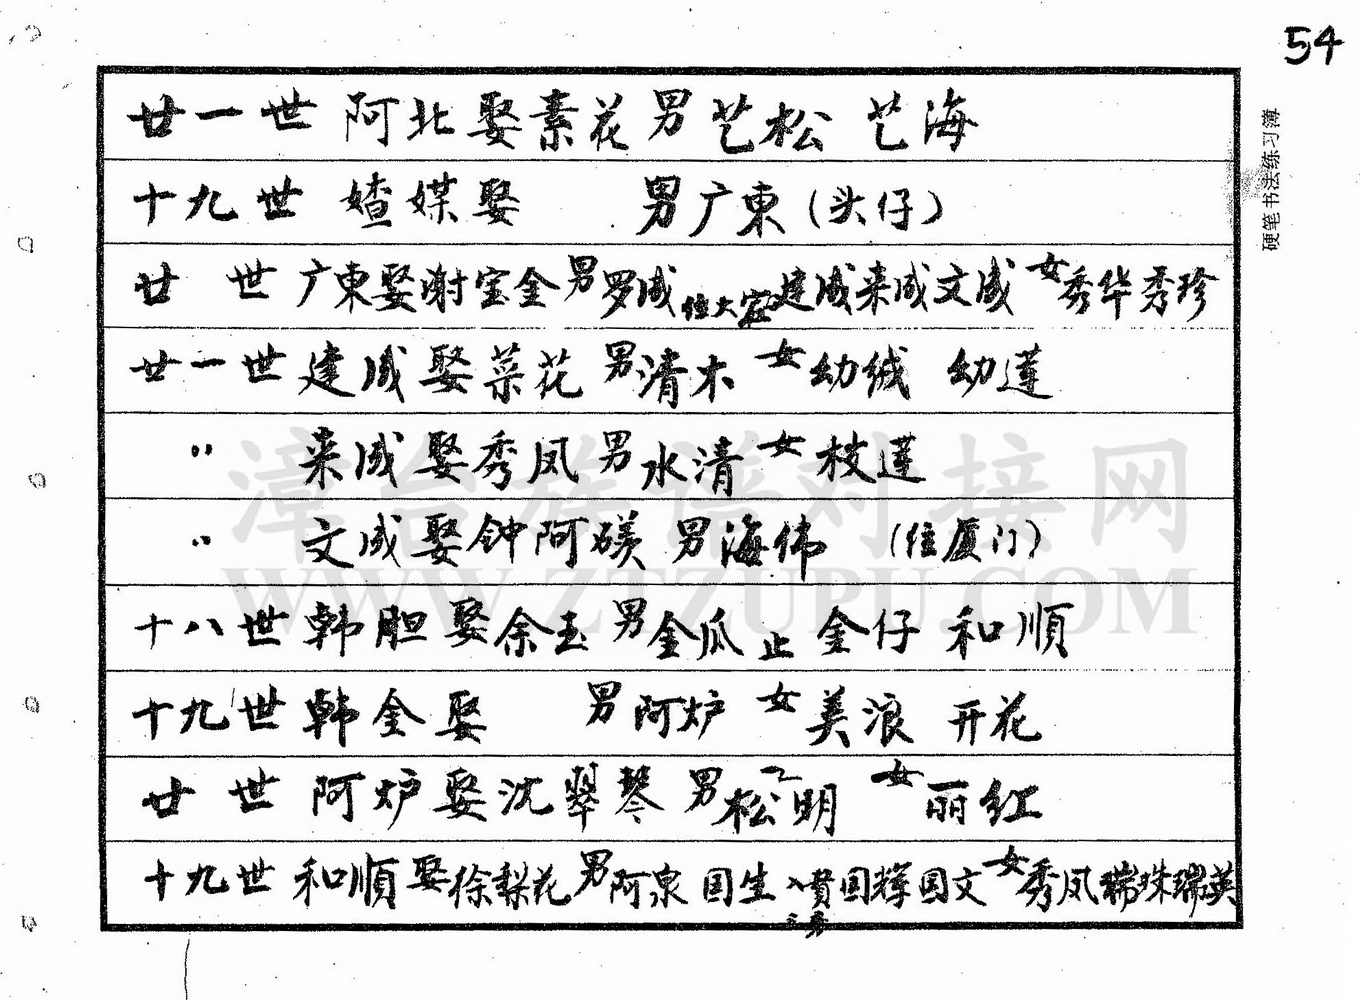 54
硬笔书法练习薄
廿一世 阿北娶素花 男艺松 艺海
十九世 媎媒娶 男广東（头仔）
廿 世 广東娶谢宝金 男罗成 住大 建成来成文成 女秀华秀珍
廿一世 建成娶菜花 男清木 女幼绒 幼莲
〃 来成娶秀凤 男水清 女枝莲
〃 文成娶钟阿 男海伟 （住厦门）
十八世 韩胆娶余玉 男金瓜 止 金仔 和順
十九世 韩金娶 男阿炉 女美浪 开花
廿 世 阿炉娶沈翠琴 男松明 女丽红
十九世 和順娶徐梨花 男阿泉 国生 国辉国文 女秀凤瑞珠瑞英
漳台族谱对接网
WWW.ZTZUPU.COM